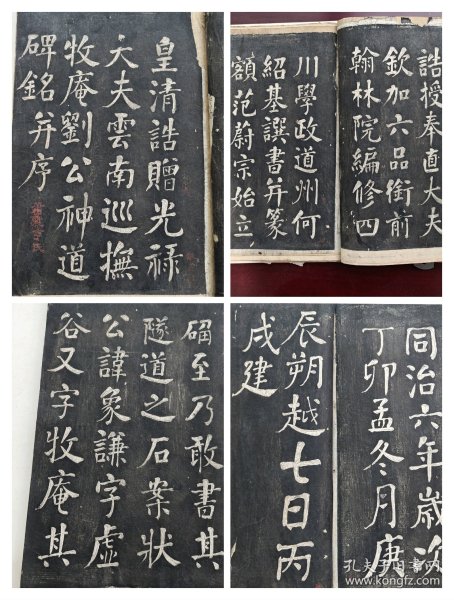 皇清誥贈光祿
大夫雲南巡撫
牧庵劉公神道
碑銘并序
誥授奉直大夫
欽加六品銜前
翰林院編修四
川學政道州何
紹基譔書并篆
額范蔚宗始立
碣至乃敢書其
隧道之石案狀
公諱象謙字虛
谷又字牧庵其
同治六年歲次
丁卯孟冬月庚
辰朔越七日丙
戌建
孔夫子旧书网
www.kongfz.com